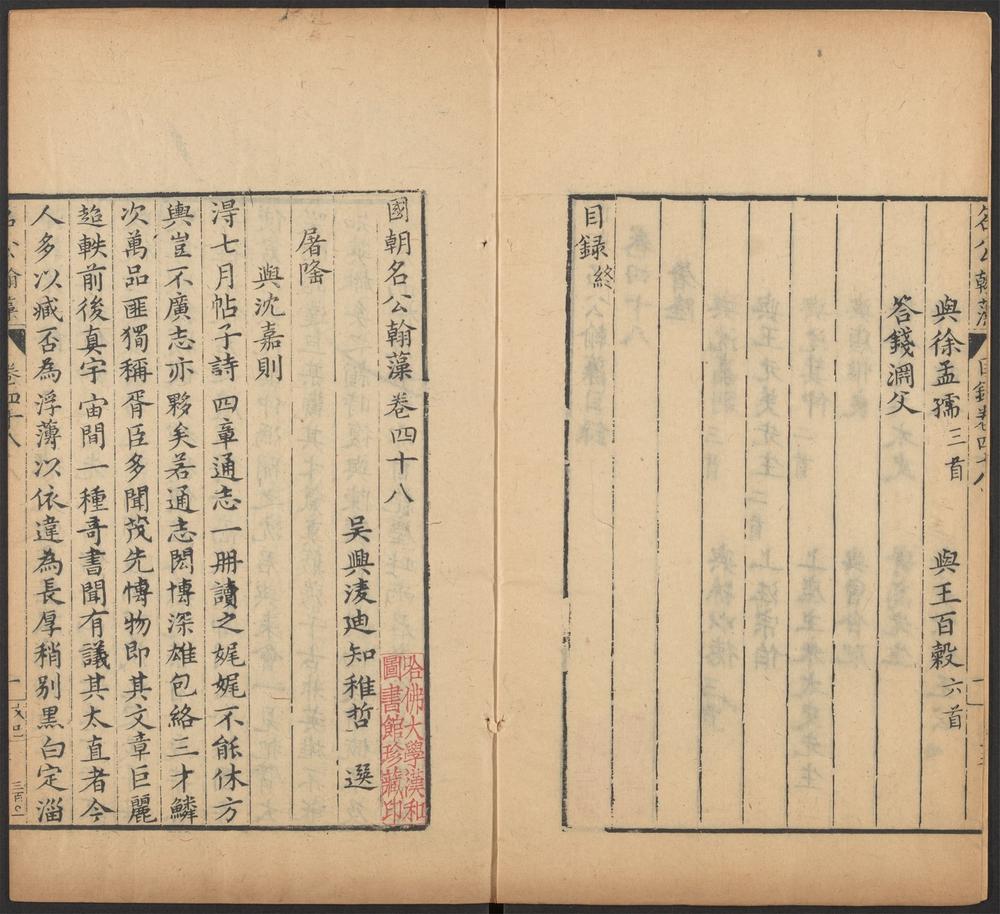 名公翰藻 目錄卷四十八
與徐孟孺三首 與王百穀六首
答錢淵父
目録終
國朝名公翰藻卷四十八
吴興淩迪知稚哲 選
屠隆
與沈嘉則
淂七月帖子詩四章通志一册讀之娓娓不能休方
輿豈不廣志亦夥矣若通志閎博深雄包絡三才鱗
次萬品匪獨稱胥臣多聞茂先愽物即其文章巨麗
超軼前後真宇宙間一種奇書聞有議其太直者今
人多以臧否為浮薄以依違為長厚稍别黒白定淄
名公翰藻 卷四十八 一
哈佛大學漢和
圖書館珍藏印